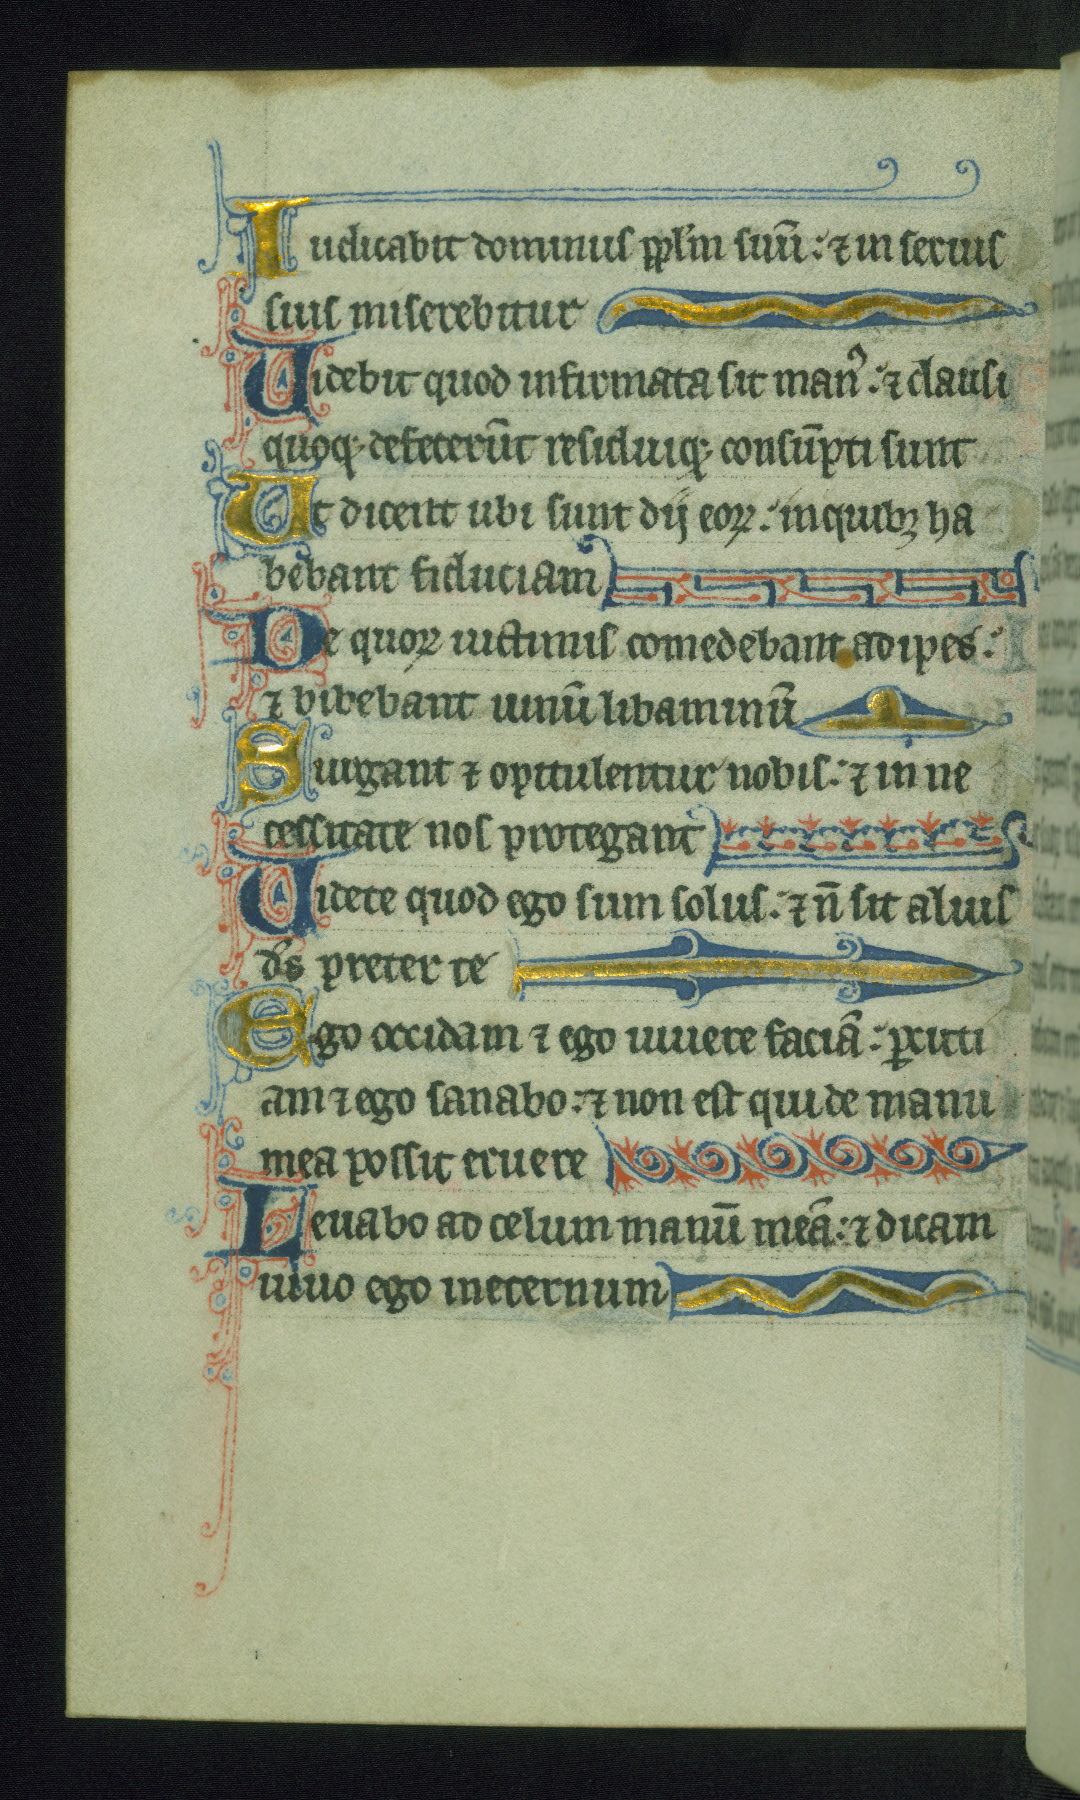 Iudicabit dominus pplm suū: ⁊ in seruis
suis miserebitur
Uidebit quod infirmata sit manꝰ: ⁊ clausi
quoqꝫ defecerūt residuiqꝫ consūpti sunt
Ut dicent ubi sunt dij eoꝝ: inquibꝫ ha
bebant fiduciam
De quoꝝ uictimis comedebant adipes:
⁊ bibebant uinū libaminū
Surgant ⁊ opitulentur nobis: ⁊ in ne
cessitate nos protegant
Uidete quod ego sum solus: ⁊ n̄ sit alius
ds preter te
Ego occidam ⁊ ego uiuere faciā: ꝑcuti
am ⁊ ego sanabo: ⁊ non est qui de manu
mea possit eruere
Leuabo ad celum manū meā: ⁊ dicam
uiuo ego ineternum